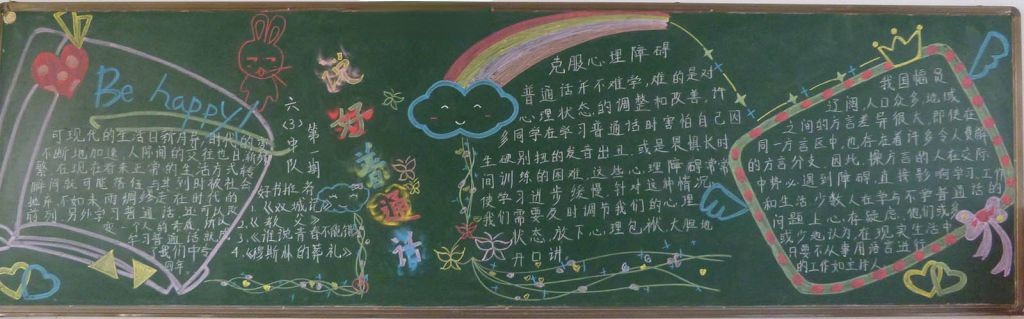 Be happy!
可现代的生活日新月异,时代的
不断地加速,人际间的交往也日
繁,在现在看来正常的生活方式转
瞬间就可能落伍,
学习普通话
六
(3)
中
队
第
期
好书推荐
1.《双城记》
2.《教父》
3.《谁说青春不能错》
4.《穆斯林的葬礼》
说好普通话
克服心理障碍
普通话并不难学,难的是对
心理状态的调整和改善,许
多同学在学习普通话时害怕自己因
生硬别扭的发音出丑,或是畏惧长时
间训练的困难,这些心理障碍常常
使学习进步缓慢,针对这种情况,
我们需要及时调节我们的心理
状态,放下心理包袱,大胆地
开口讲
我国幅员
辽阔,人口众多,地域
之间的方言差异很大,即使在
同一方言区中,也存在着许多令人费解
的方言分支,因此,操方言的人在交际
中势必遇到障碍,直接影响学习、工作
和生活,少数人在学与不学普通话的
问题上心存疑虑,他们或多
或少地认为在现实生活中
只要不从事用语言进行
的工作如主持人